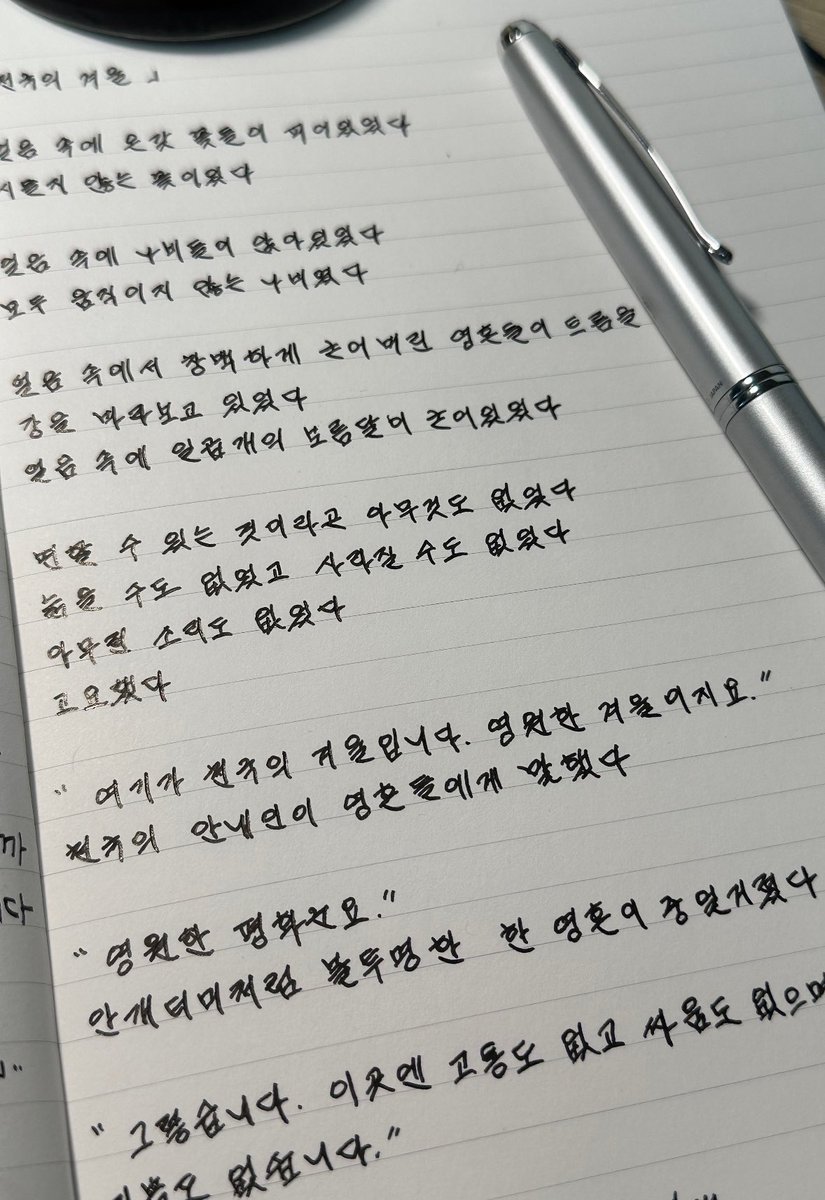 천국의 겨울 」
얼음 속에 온갖 꽃들이 피어있었다
시들지 않는 꽃이었다
얼음 속에 나비들이 앉아있었다
모두 움직이지 않는 나비였다
얼음 속에서 창백하게 얼어버린 영혼들이 흐름을
강을 바라보고 있었다
얼음 속에 일곱개의 보름달이 얼어있었다
변할 수 있는 것이라곤 아무것도 없었다
늙을 수도 없었고 사라질 수도 없었다
아무런 소리도 없었다
고요했다
" 여기가 천국의 겨울입니다. 영원한 겨울이지요."
천국의 안내인이 영혼들에게 말했다
" 영원한 평화군요."
안개더미처럼 불투명한 한 영혼이 중얼거렸다
" 그렇습니다. 이곳엔 고통도 없고 싸움도 없으며
없습니다."
까
다
"
JAPAN